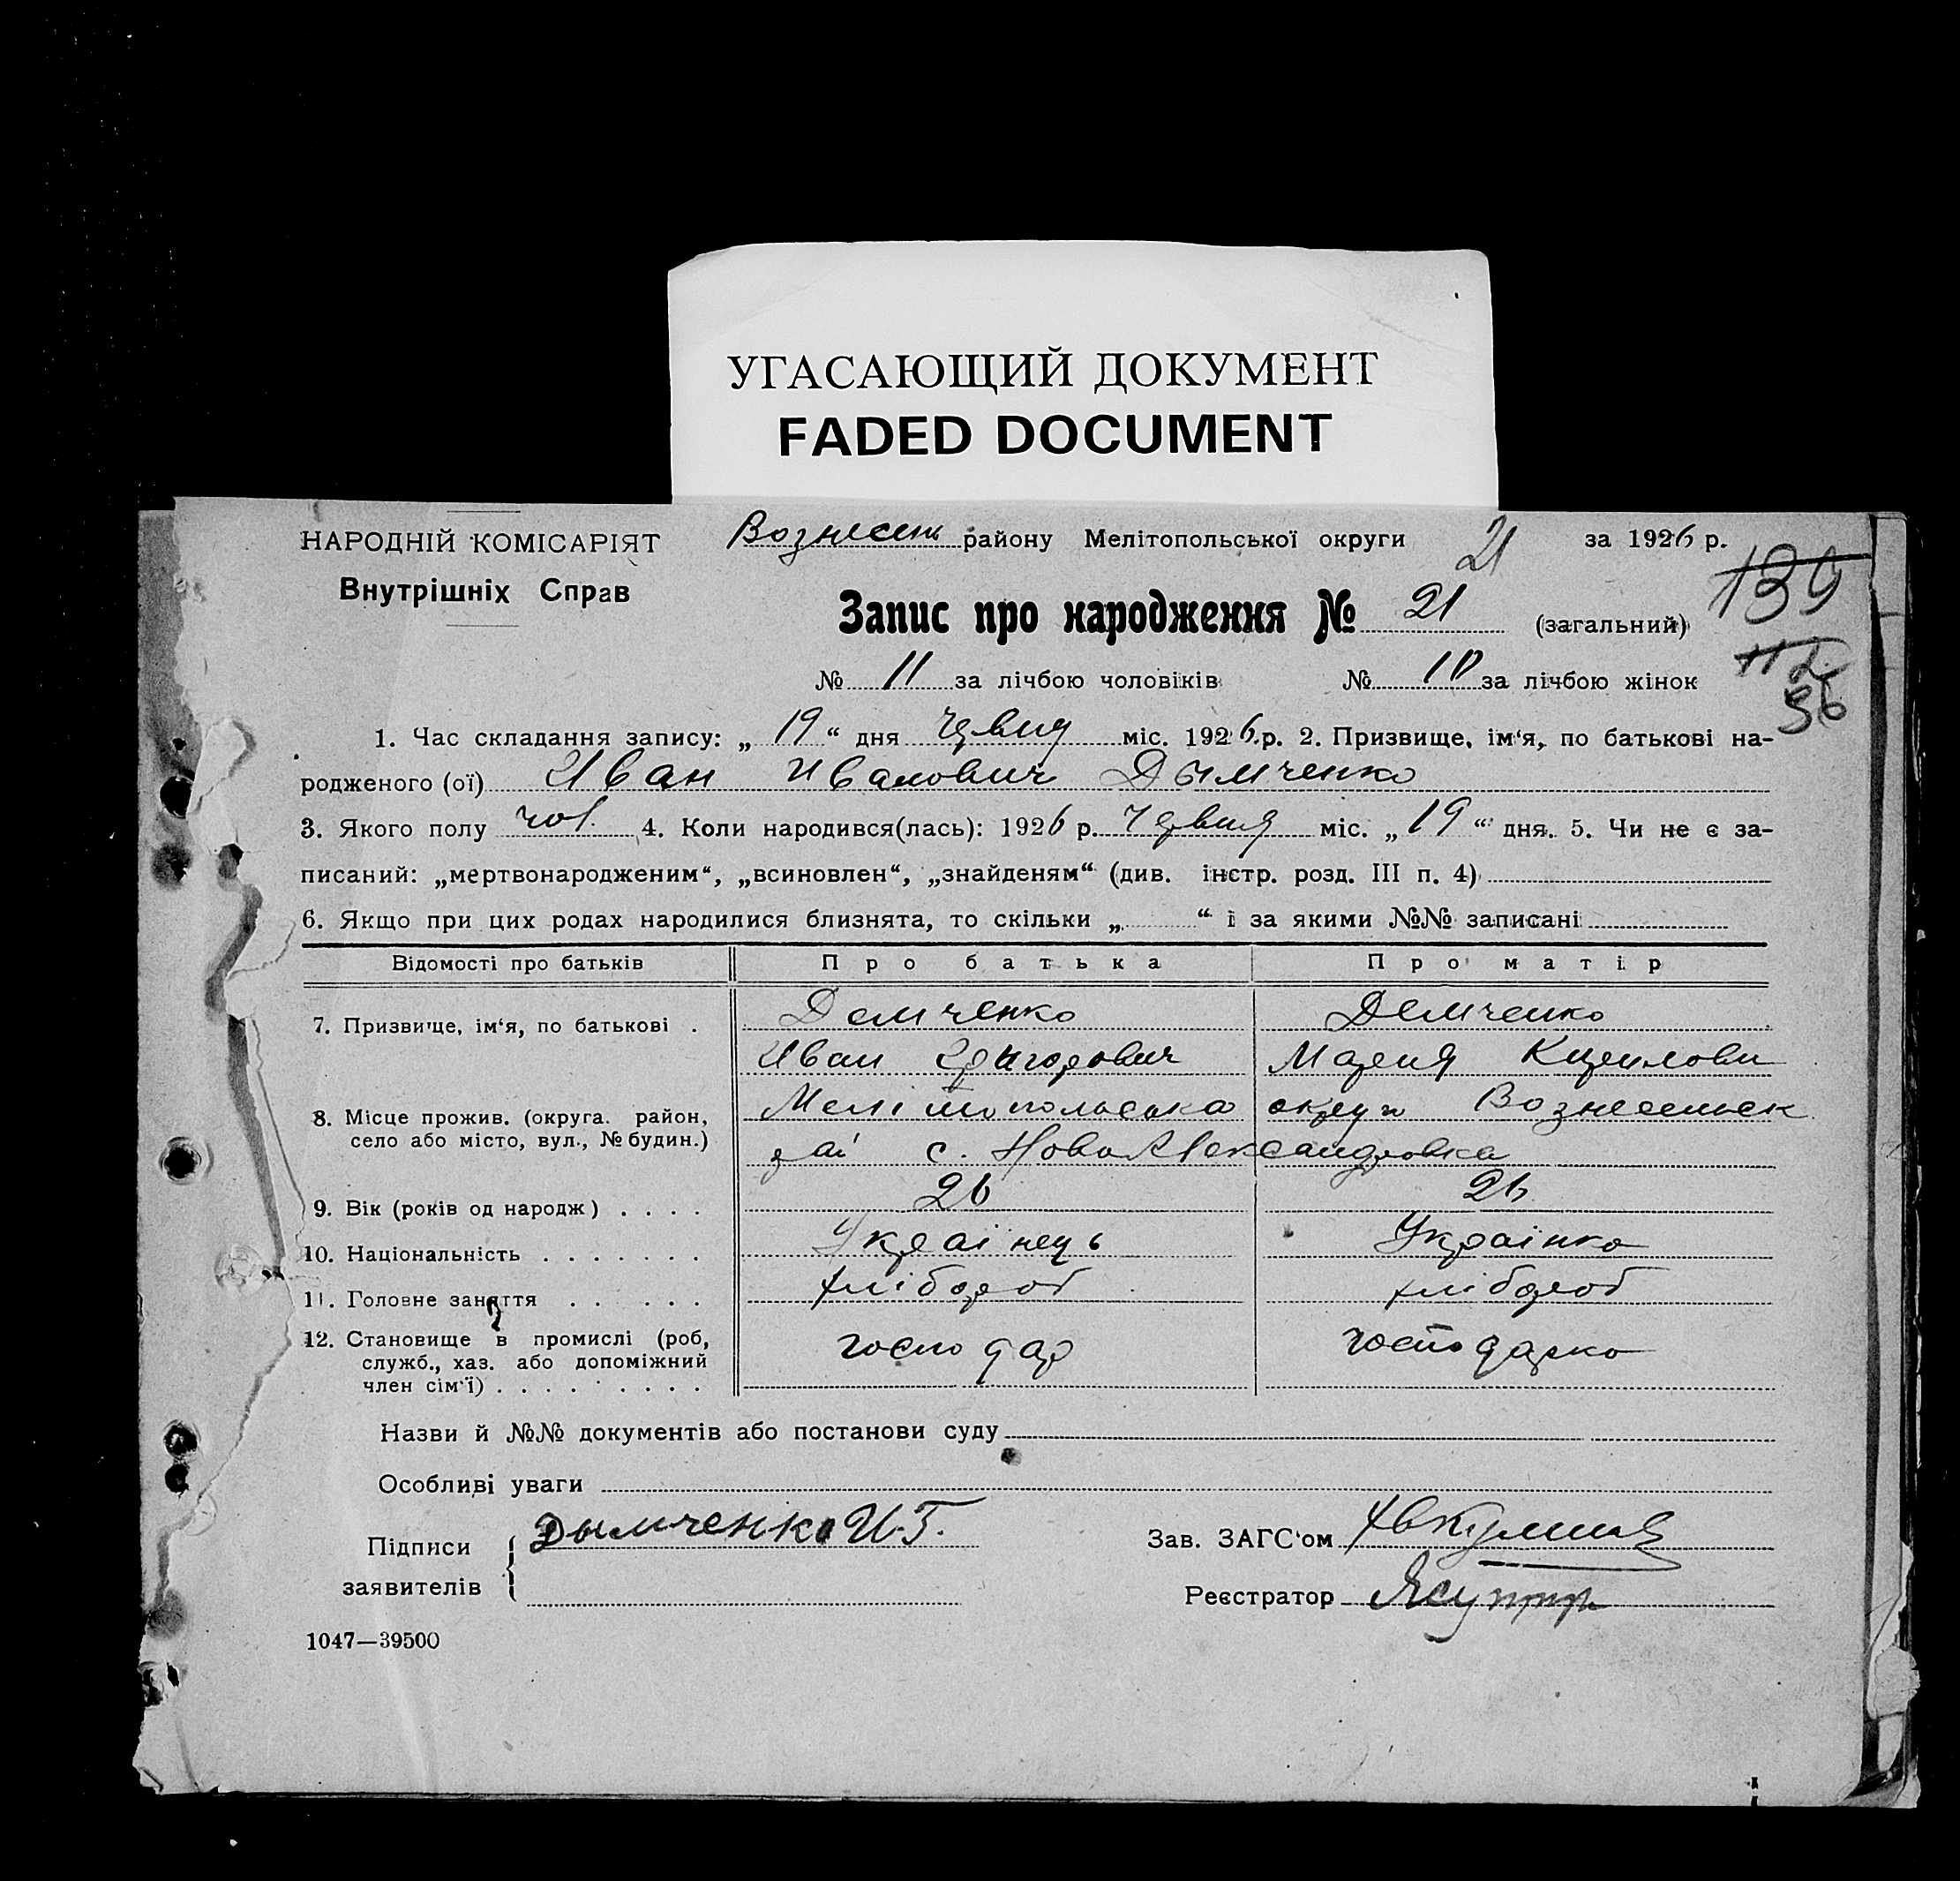 УГАСАЮЩИЙ ДОКУМЕНТ
FADED DOCUMENT
НАРОДНІЙ КОМІСАРІЯТ
Внутрішніх Справ
Вознесен району Мелітопольської округи за 1926 р.
21
Запис про народження № 21 (загальний)
139
112
36
№ 11 за лічбою чоловіків № 10 за лічбою жінок
1. Час складання запису: „ 19 “ дня червня міс. 1926 р. 2. Призвище, ім‘я, по батькові на-
родженого (ої) Иван Иванович Дымченко
3. Якого полу чол. 4. Коли народився(лась): 1926 р. червня міс. „ 19 “ дня. 5. Чи не є за-
писаний: „мертвонародженим“, „всиновлен“, „знайденям“ (див. інстр. розд. III п. 4)
6. Якщо при цих родах народилися близнята, то скільки „ “ і за якими №№ записані
Відомості про батьків Про батька Про матір
7. Призвище, ім‘я, по батькові . Демченко Демченко
Иван Григорович Мария
8. Місце прожив. (округа. район, Мелітопольська округи Вознесенськ
село або місто, вул., № будин.) раі с. НовоАлександровка
9. Вік (років од народж) . . . . 26 26
10. Національність . . . . . . . Украінець Украінка
11. Головне заняття . . . . . хлібороб хлібороб
12. Становище в промислі (роб, господар господарка
служб., хаз. або допоміжний
член сім‘ї) . . . . . . . . .
Назви й №№ документів або постанови суду
Особливі уваги
Підписи
заявителів
Дымченко И.Г.
Зав. ЗАГС‘ом
Реєстратор
1047—39500